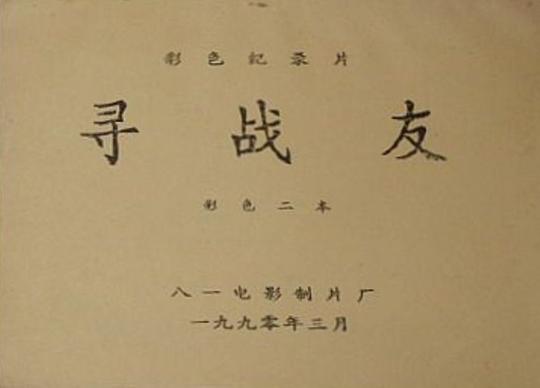 彩色纪录片
寻战友
彩色二本
八一电影制片厂
一九九零年三月